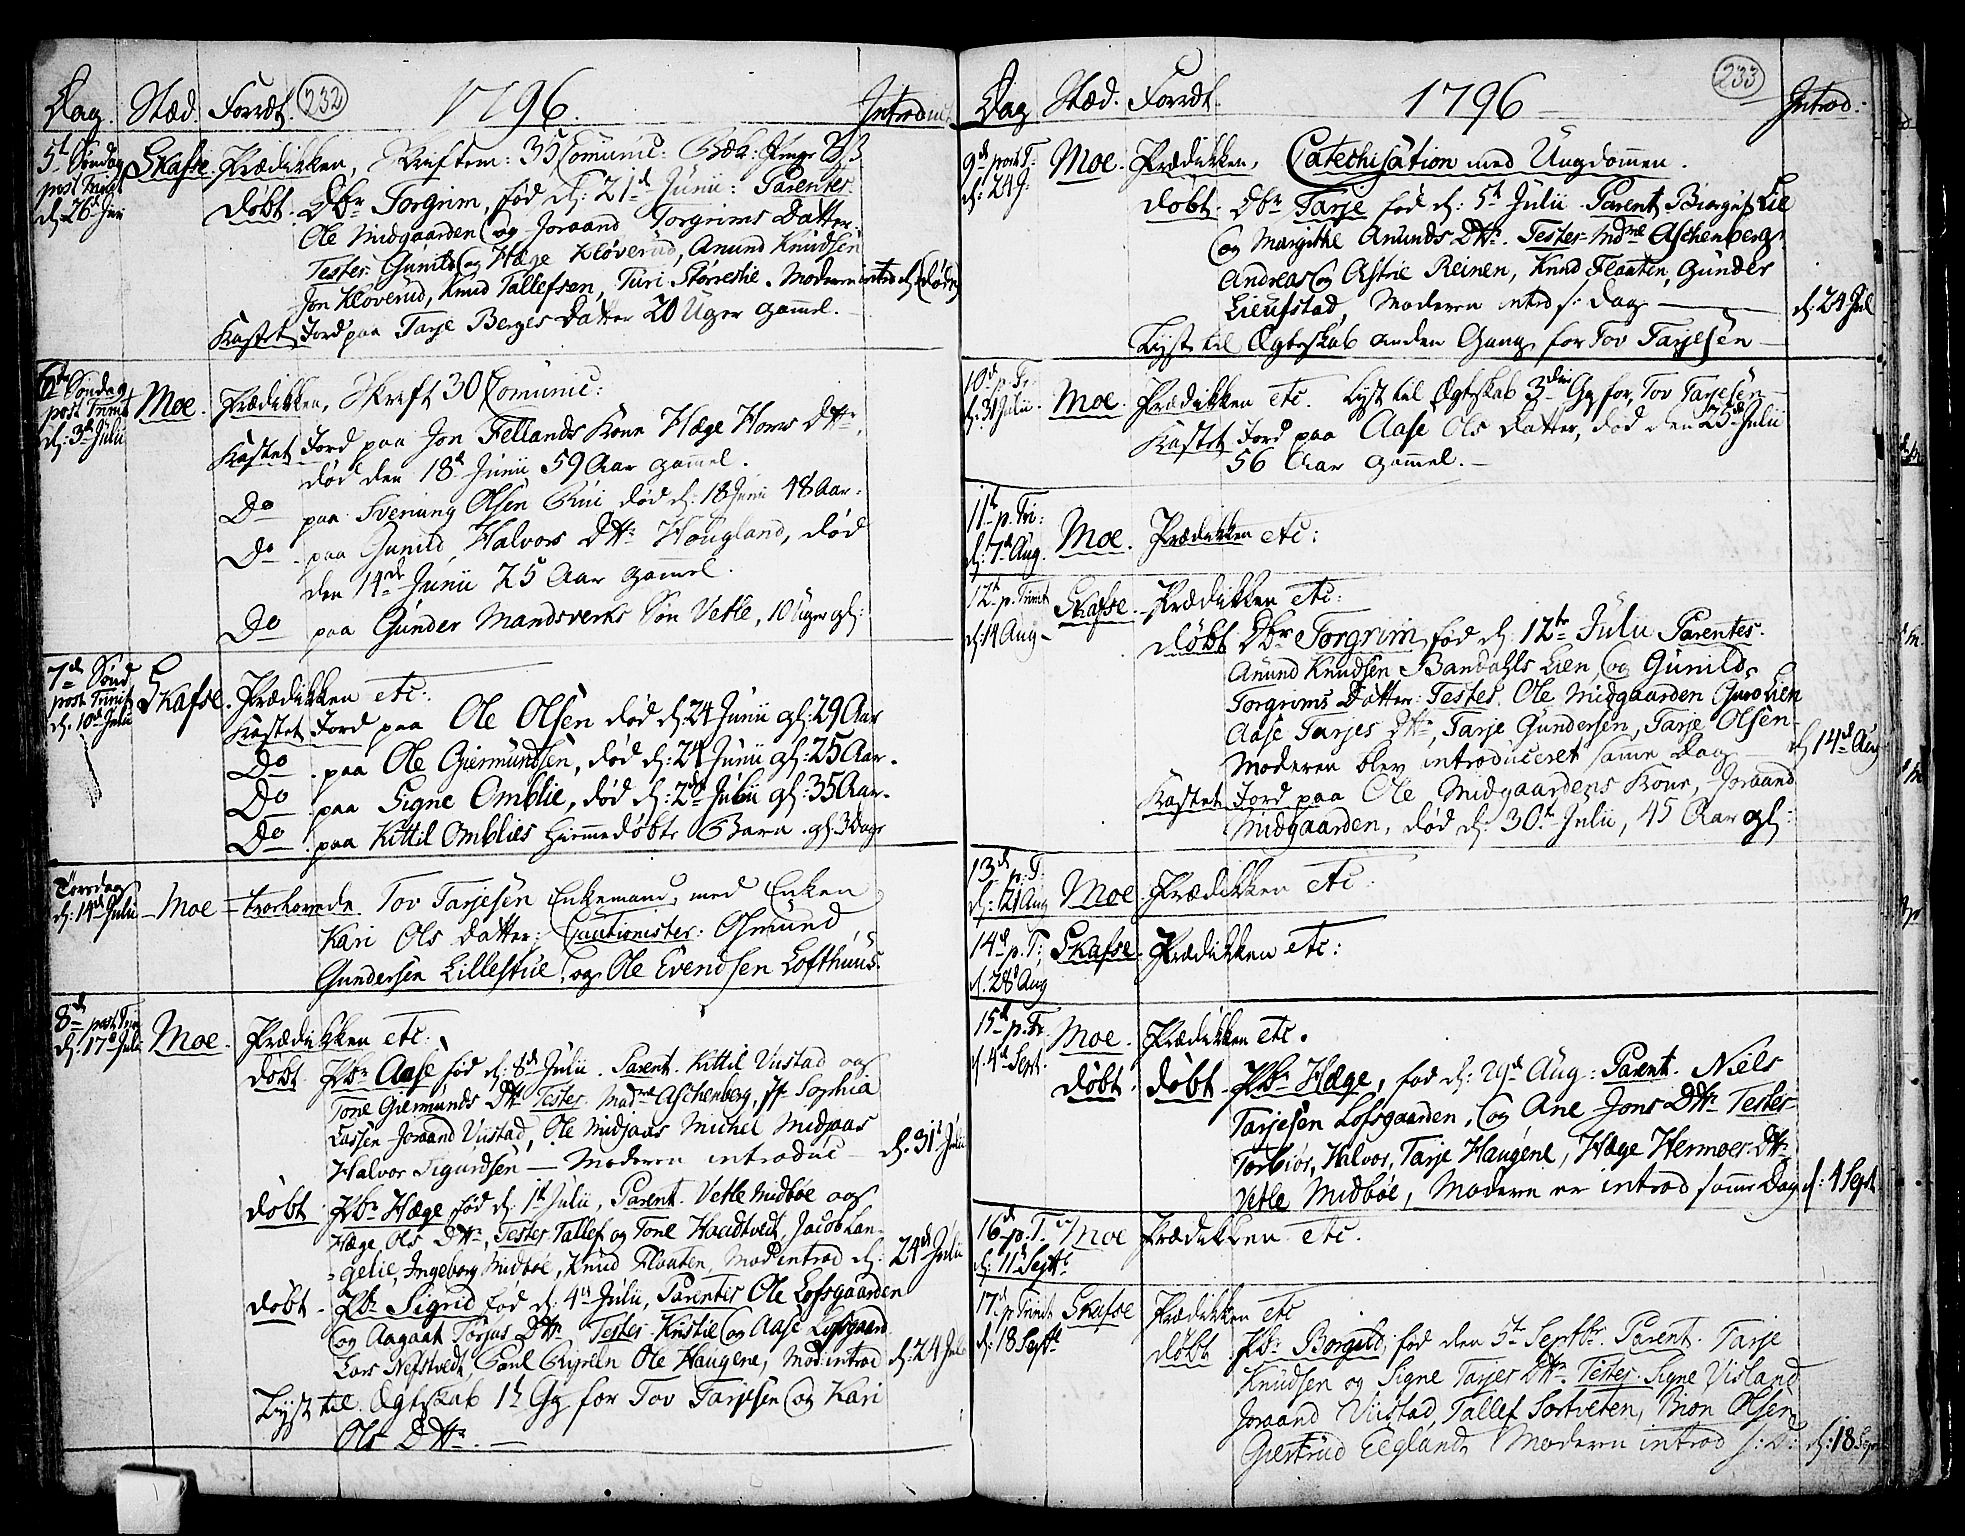 Dag. Stæd. Forrdt. 232 1796. Introduct.
5t Søndag Skafse. Prædikken, Skriftem: 35 Comunic:
post Trinit døbt. Dbr Torgrim, fød d: 21d Junii: Parentes
d: 26d Juni Ole Midgaarden og Joraand Torgrims Datter.
Tester Gunild og Hæge Kløverud, Anund Knudsen
Jon Kloverud, Knud Tallefsen, Turi Storrestie. Moderen introd d:
Kastet Jord paa Tarje Berges Datter 20 Uger gammel.
6te Søndag
post Trinit Moe. Prædikken, Skrift 30 Comunic:
d: 3d Julii Kastet Jord paa Jon Fellands Kone Hæge Dttr,
død den 18d Junii 59 Aar gammel.
Do paa Sveinung Olsen død d: 18 Juni 48 Aar.
Do paa Gunild Halvors Dttr Hougland, død
den 14de Junii 25 Aar gamel.
Do paa Gunder Mandsverks Søn Vetle, 10 Uger gl:
7d Sønd.
post Trinit Skafse. Prædikken etc:
d: 10d Julii Kastet Jord paa Ole Olsen død d: 24 Junii gl: 29 Aar
Do paa Ole Giermundsen, død d: 24 Junii gl: 25 Aar.
Do paa Signe Omblie, død d: 2d Julii gl: 35 Aar.
Do paa Kittil Omblies hiemmedøbte Barn gl: 3 Dage
Torsdag
d: 14d Julii Moe trorhovede Tov Tarjesen Enkemand, med Enken
Kari Ols Datter: Cautionister: Osmund
Gundersen Lillestue, og Ole Evendsen Lofthuus.
8d post Trin
d: 17d Julii Moe. Prædikken etc:
døbt Pbr Aase fød d: 8d Julii. Parent. Kittil Vustad og
Tone Giermunds Dttr Tester Madme Aschenberg, Jf Sophia
Lassen Joraand Vustad, Ole Midjaas Michel Midjaas
Halvor Sigurdsen — Moderen introduc — d: 31t Julii
døbt. Pbr Hæge fød d: 1t Julii, Parent. Vetle Midbøe og
Hæge Ols Dttr, Tester Tallef og Tone Haudtvedt, Jacob Lan-
gelie, Ingeborg Midbøe, Knud Floaten, Mod introd d: 24d Julii
døbt. Pbr Sigrid fød d: 4t Julii, Parentes Ole Lofsgaarden
og Aagaat Torjus Dttr Tester Kristie og Aase Lofsgaard
Lars Nefstvedt, Ole Haugene, Mod: introd d: 24 Juli
Lyst til Egtskab 1t Gg for Tov Tarjesen og Kari
Ols Dttr. —
Dag Stæd. Forrdt. 1796 233 Introd:
9d post T: Moe. Prædikken, Catechisation med Ungdommen.
d: 24 J. døbt. Dbr Tarje fød d: 5t Julii Parent Birgit Lie
og Margithe Anunds Dttr. Tester Mdme Aschenberg
Andreas og Astrie Reinen, Knud Flaaten, Gunder
Lieufstad, Moderen introd s: Dag — d: 24 Jul
Lyst til Ægteskab anden Gang for Tov Tarjesen —
10d p. Tr:
d: 31 Julii. Moe. Prædikken etc. Lyst til Ægtskab 3die Gg for Tov Tarjesen —
Kastet Jord paa Aase Ols Datter, død den 25d Julii
56 Aar gammel. —
11t p. Tri:
d: 7d Aug. Moe. Prædikken etc:
12t p. Trinit Skafse. Prædikken etc:
d: 14 Aug døbt Dbr Torgrim fød d: 12te Julii Parentes.
Anund Knudsen Bandahls Lien, og Gunild
Torgrims Datter: Testes. Ole Midgaarden Guro Lien
Aase Tarjes Dttr, Tarje Gundersen, Tarje Olsen
Moderen blev introduceret samme Dag — d: 14d Aug
Kastet Jord paa Ole Midgaardens Kone, Joraand
Midgaarden, død d: 30t Julii, 45 Aar gl:
13d p. T:
d: 21 Aug Moe Prædikken etc:
14d p. T; Skafse. Prædikken etc:
d. 28d Aug
15d p. Tr. Moe. Prædikken etc.
d. 4d Sept. døbt. døbt. Pbr Hæge, fød d: 29d Aug: Parent. Niels
Tarjesen Lofsgaarden, og Ane Jons Dttr Tester
Torbiør, Halvor, Tarje Haugene, Hæge Hermoes Dttr
Vetle Midbøe, Modern er introd samme Dag d: 4 Sept
16d p. T. Moe Prædikken etc.
d: 11 Septbr
17d p Trinit Skafse Prædikken etc
d: 18 Septbr døbt Pbr Borgild, fød den 5t Septbr. Parent. Tarje
Knudsen og Signe Tarjes Dttr. Tester. Signe Visland
Joraand Vustad, Tallef Sortveten, Bion Olsen
Giertrud Eegland, Moderen introd s: D: d: 18 Sept